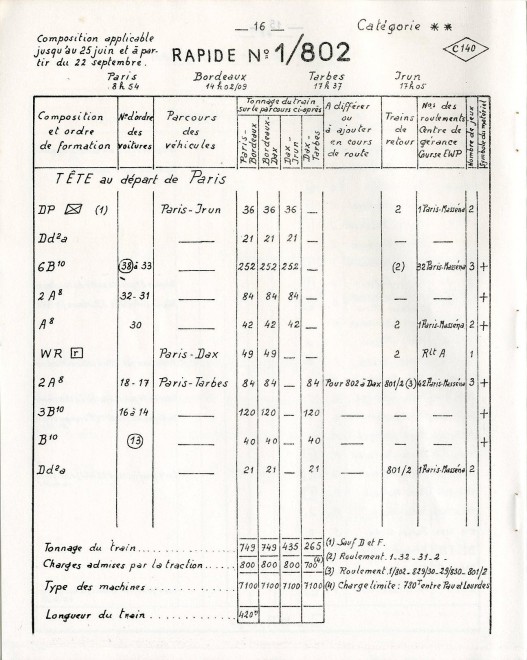 — 16 —
Catégorie **
Composition applicable
jusqu'au 25 juin et à par-
tir du 22 septembre.
RAPIDE Nº 1/802
C140
Paris Bordeaux Tarbes Irun
8h54 14h02/09 17h37 17h05
Composition et ordre de formation
Nºd'ordre des voitures
Parcours des véhicules
Tonnage du train sur le parcours ci-après
Paris - Bordeaux
Bordeaux - Dax
Dax - Irun
Dax - Tarbes
A différer ou à ajouter en cours de route
Trains de retour
Nºs des roulements Centre de gérance Gurse EWP
Nombre de jeux
Symbole du matériel
TÊTE au départ de Paris
DP (1) Paris-Irun 36 36 36 — 2 1 Paris-Masséna 2
Dd²a — 21 21 21 — — —
6B¹⁰ 38 à 33 — 252 252 252 — (2) 32 Paris-Masséna 3 +
2A⁸ 32-31 — 84 84 84 — — — +
A⁸ 30 — 42 42 42 — 2 1 Paris-Masséna 2 +
WR r Paris-Dax 49 49 — — 2 Rlt A 1
2A⁸ 18-17 Paris-Tarbes 84 84 — 84 Pour 802 à Dax 801/2 (3) 42 Paris-Masséna 3 +
3B¹⁰ 16 à 14 — 120 120 — 120 — — +
B¹⁰ 13 — 40 40 — 40 — — +
Dd²a — 21 21 — 21 801/2 1 Paris-Masséna 2
Tonnage du train 749 749 435 265
Charges admises par la traction 800 800 800 700 (4)
Type des machines 7100 7100 7100 7100
Longueur du train 420ᵐ
(1) Sauf D et F.
(2) Roulement. 1-32-31-2-
(3) Roulement. 1/802-829/30-29/830-801/2
(4) Charge limite: 780ᵀ entre Pau et Lourdes